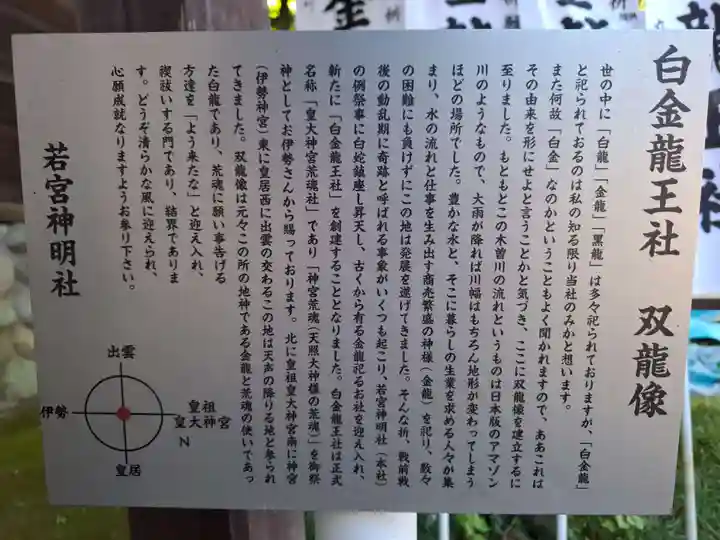 白金龍王社 双龍像
世の中に「白龍」「金龍」「黒龍」は多々祀られておりますが、「白金龍」
と祀られておるのは私の知る限り当社のみかと想います。
また何故「白金」なのかということもよく聞かれますので、ああこれは
その由来を形にせよと言うことかと気づき、ここに双龍像を建立するに
至りました。もともとこの木曽川の流れというものは日本版のアマゾン
川のようなもので、大雨が降れば川幅はもちろん地形が変わってしまう
ほどの場所でした。豊かな水と、そこに暮らしの生業を求める人々が集
まり、水の流れと仕事を生み出す商売繁盛の神様（金龍）を祀り、数々
の困難にも負けずにこの地は発展を遂げてきました。そんな折、戦前戦
後の動乱期に奇跡と呼ばれる事象がいくつも起こり、若宮神明社（本社）
の例祭事に白蛇鎮座し昇天し、古くから有る金龍祀るお社を迎え入れ、
新たに「白金龍王社」を創建することとなりました。白金龍王社は正式
名称「皇大神宮荒魂社」であり「神宮荒魂（天照大神様の荒魂）」を御祭
神としてお伊勢さんから賜っております。北に皇祖皇大神宮南に神宮
（伊勢神宮）東に皇居西に出雲の交わるこの地は天声の降りる地と参られ
てきました。双龍像は元々この所の地神である金龍と荒魂の使いであっ
た白龍であり、荒魂に願い事告げる
方達を「よう来たな」と迎え入れ、
禊祓いする門であり、結界でありま
す。どうぞ清らかな風に迎えられ、
心願成就なりますようお参り下さい。
若宮神明社
出雲
伊勢
皇祖
皇大神宮
N
皇居